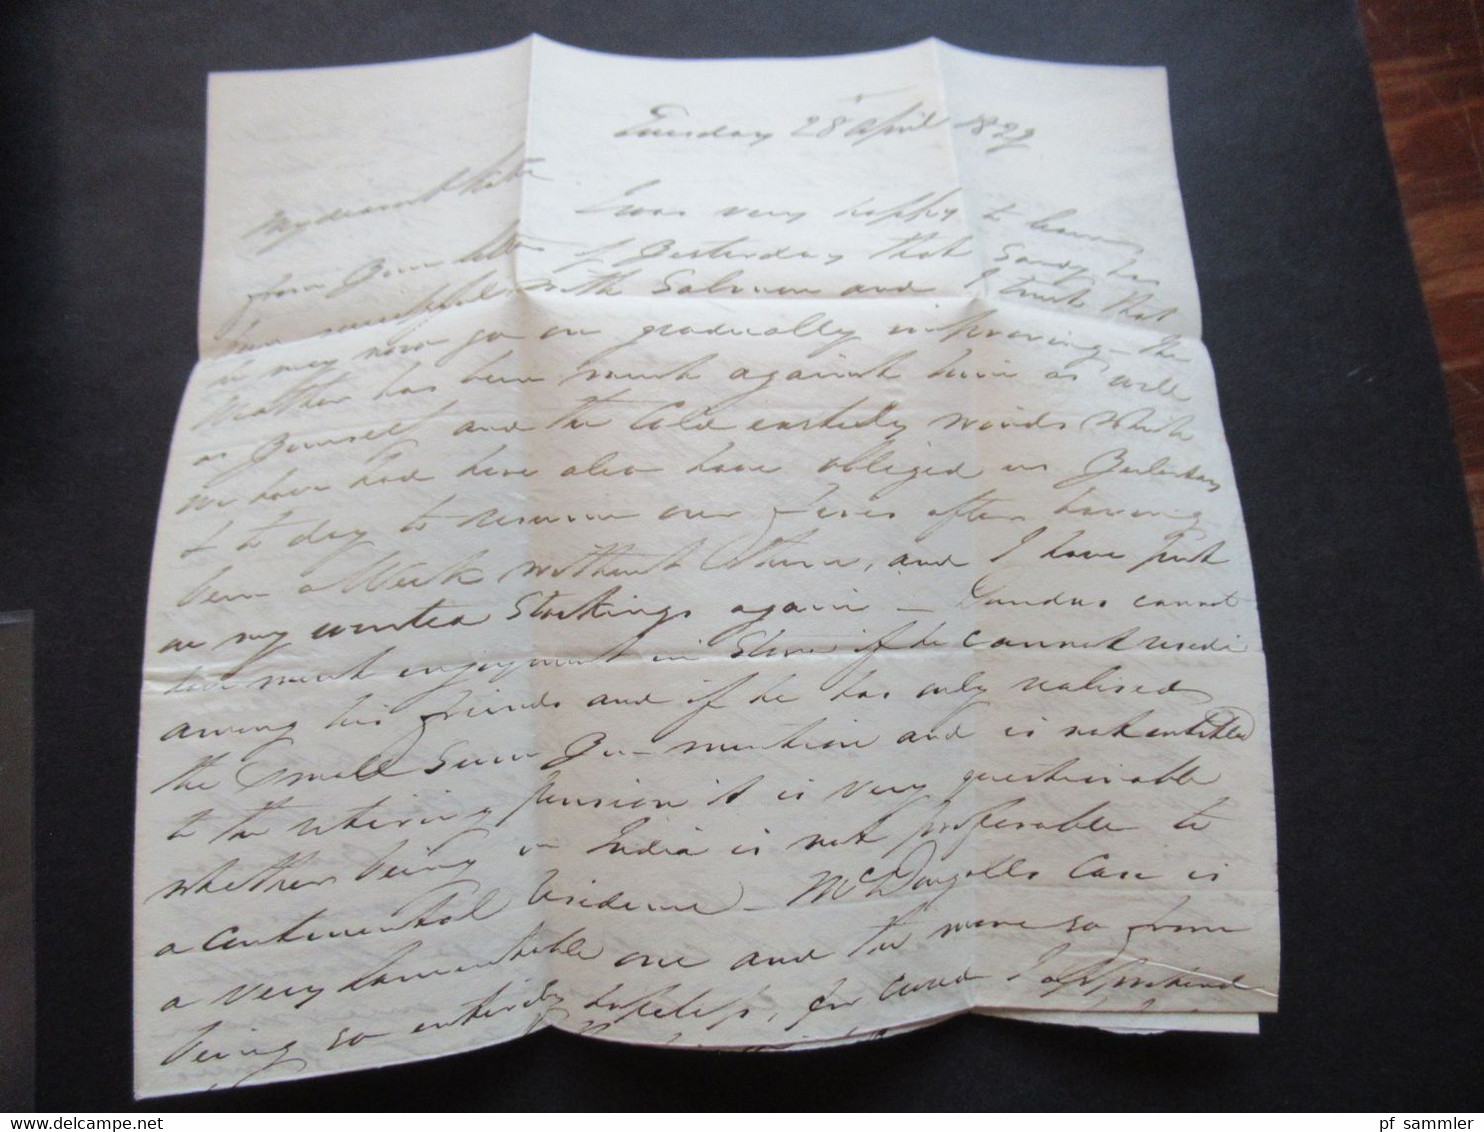 Tuesday 28 April 1829
My dearest Kate
I was very happy to learn
from Your letter of Yesterday that Sandy has
been successful with Salmon and I trust that
he may now go on gradually improving - The
Weather has been much against him as well
as Yourself and the Cold easterly winds which
we have had here also have obliged us Yesterday
& to day to resume our fires after having
been a Week without them, and I have put
on my winter Stockings again - Dundas cannot
have much enjoyment in Store if he cannot reside
among his friends and if he has only realised
the Small Sum You mention and is not entitled
to the retiring pension it is very questionable
whether being in India is not preferable to
a Continental residence - McDougalls Case is
a very lamentable one and the more so from
being so entirely hopeless, for cured I apprehend
pf sammler